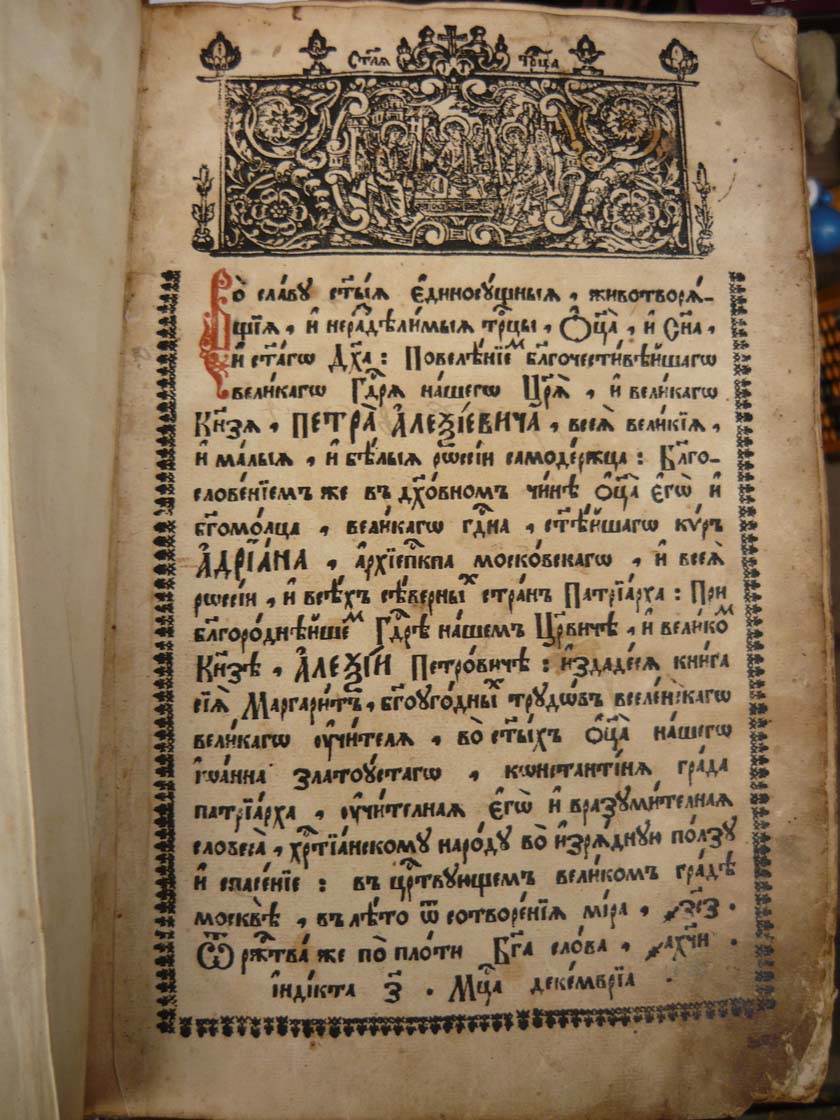 Ст҃ая Трⷪ҇ца
Во сла́вꙋ ст҃ы́ѧ є҆диносꙋ́щныѧ, животворѧ́-
щїѧ, и҆ нераздѣли́мыѧ трⷪ҇цы, Ѻ҆ц҃а̀, и҆ Сн҃а,
и҆ ст҃а́гѡ Дх҃а: Повелѣ́нїемъ бл҃гочести́вѣйшагѡ
вели́кагѡ Гдⷭ҇рѧ на́шегѡ Цр҃ѧ̀, и҆ вели́кагѡ
Кн҃зѧ, ПЕТРА̀ А҆ЛЕѮІ́ЕВИЧА, всеѧ̀ вели́кїѧ,
и҆ ма́лыѧ, и҆ бѣ́лыѧ рѡссі́и самоде́ржца: Бл҃го-
слове́нїемъ же въ дх҃о́вномъ чи́нѣ ѻ҆ц҃а̀ є҆гѡ̀ и҆
бг҃омо́лца, вели́кагѡ гдⷭ҇и́на, ст҃ѣ́йшагѡ кѵ́ръ
А҆ДРІА́НА, а҆рхїепⷭ҇кпа моско́вскагѡ, и҆ всеѧ̀
рѡссі́и, и҆ всѣ́хъ сѣ́верныⷯ стра́нъ Патрїа́рха: При
бл҃горо́днѣйшеⷨ Гдⷭ҇рѣ на́шемъ Цр҃виче, и҆ вели́коⷨ
Кн҃зѣ, А҆ЛЕѮІ́И Петро́вичѣ: и҆здаде́сѧ кни́га
сїѧ̀ Маргари́тъ, бг҃оꙋго́дныⷯ трꙋдѡ́въ вселе́нскагѡ
вели́кагѡ ᲂу҆чи́телѧ, во ст҃ы́хъ ѻ҆ц҃а̀ на́шегѡ
і҆ѡа́нна златоꙋ́стагѡ, кѡнстанті́нѧ гра́да
патрїа́рха, ᲂу҆чи́телнаѧ є҆гѡ̀ и҆ вразꙋми́телнаѧ
словеса̀, хрⷭ҇тїа́нскомꙋ наро́дꙋ во и҆зрѧ́днꙋю по́лзꙋ
и҆ спасе́нїе: въ црⷭ҇твꙋющемъ вели́комъ гра́дѣ
москвѣ̀, въ лѣ́то ѿ сотворе́нїѧ мі́ра, ҂зс҃з.
Ѿ рж҃тва́ же по пло́ти Бг҃а сло́ва, ҂ах҃чи
і҆ндⷾі́кта з҃. Мцⷭ҇а деке́мврїа